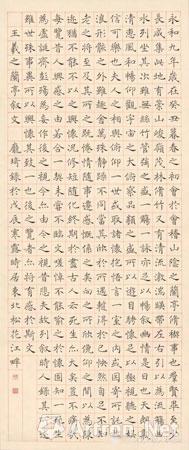 永和九年歲在癸丑暮春之初會於會稽山陰之蘭亭脩禊事也羣賢畢至少
長咸集此地有崇山峻嶺茂林脩竹又有清流激湍暎帶左右引以為流觴曲
水列坐其次雖無絲竹管弦之盛一觴一詠亦足以暢敘幽情是日也天朗氣
清惠風和暢仰觀宇宙之大俯察品類之盛所以遊目騁懷足以極視聽之娛
信可樂也夫人之相與俯仰一世或取諸懷抱悟言一室之內或因寄所託放
浪形骸之外雖趣舍萬殊靜躁不同當其欣於所遇暫得於己快然自足不知
老之將至及其所之既倦情隨事遷感慨係之矣向之所欣俛仰之間以為陳
迹猶不能不以之興懷況脩短隨化終期於盡古人云死生亦大矣豈不痛哉
每覽昔人興感之由若合一契未嘗不臨文嗟悼不能喻之於懷固知一死生
為虛誕齊彭殤為妄作後之視今亦由今之視昔悲夫故列敘時人錄其所述
雖世殊事異所以興懷其致一也後之覽者亦將有感於斯文
王羲之蘭亭敘文 龐琦錄於戊辰寒露時居東北松花江畔